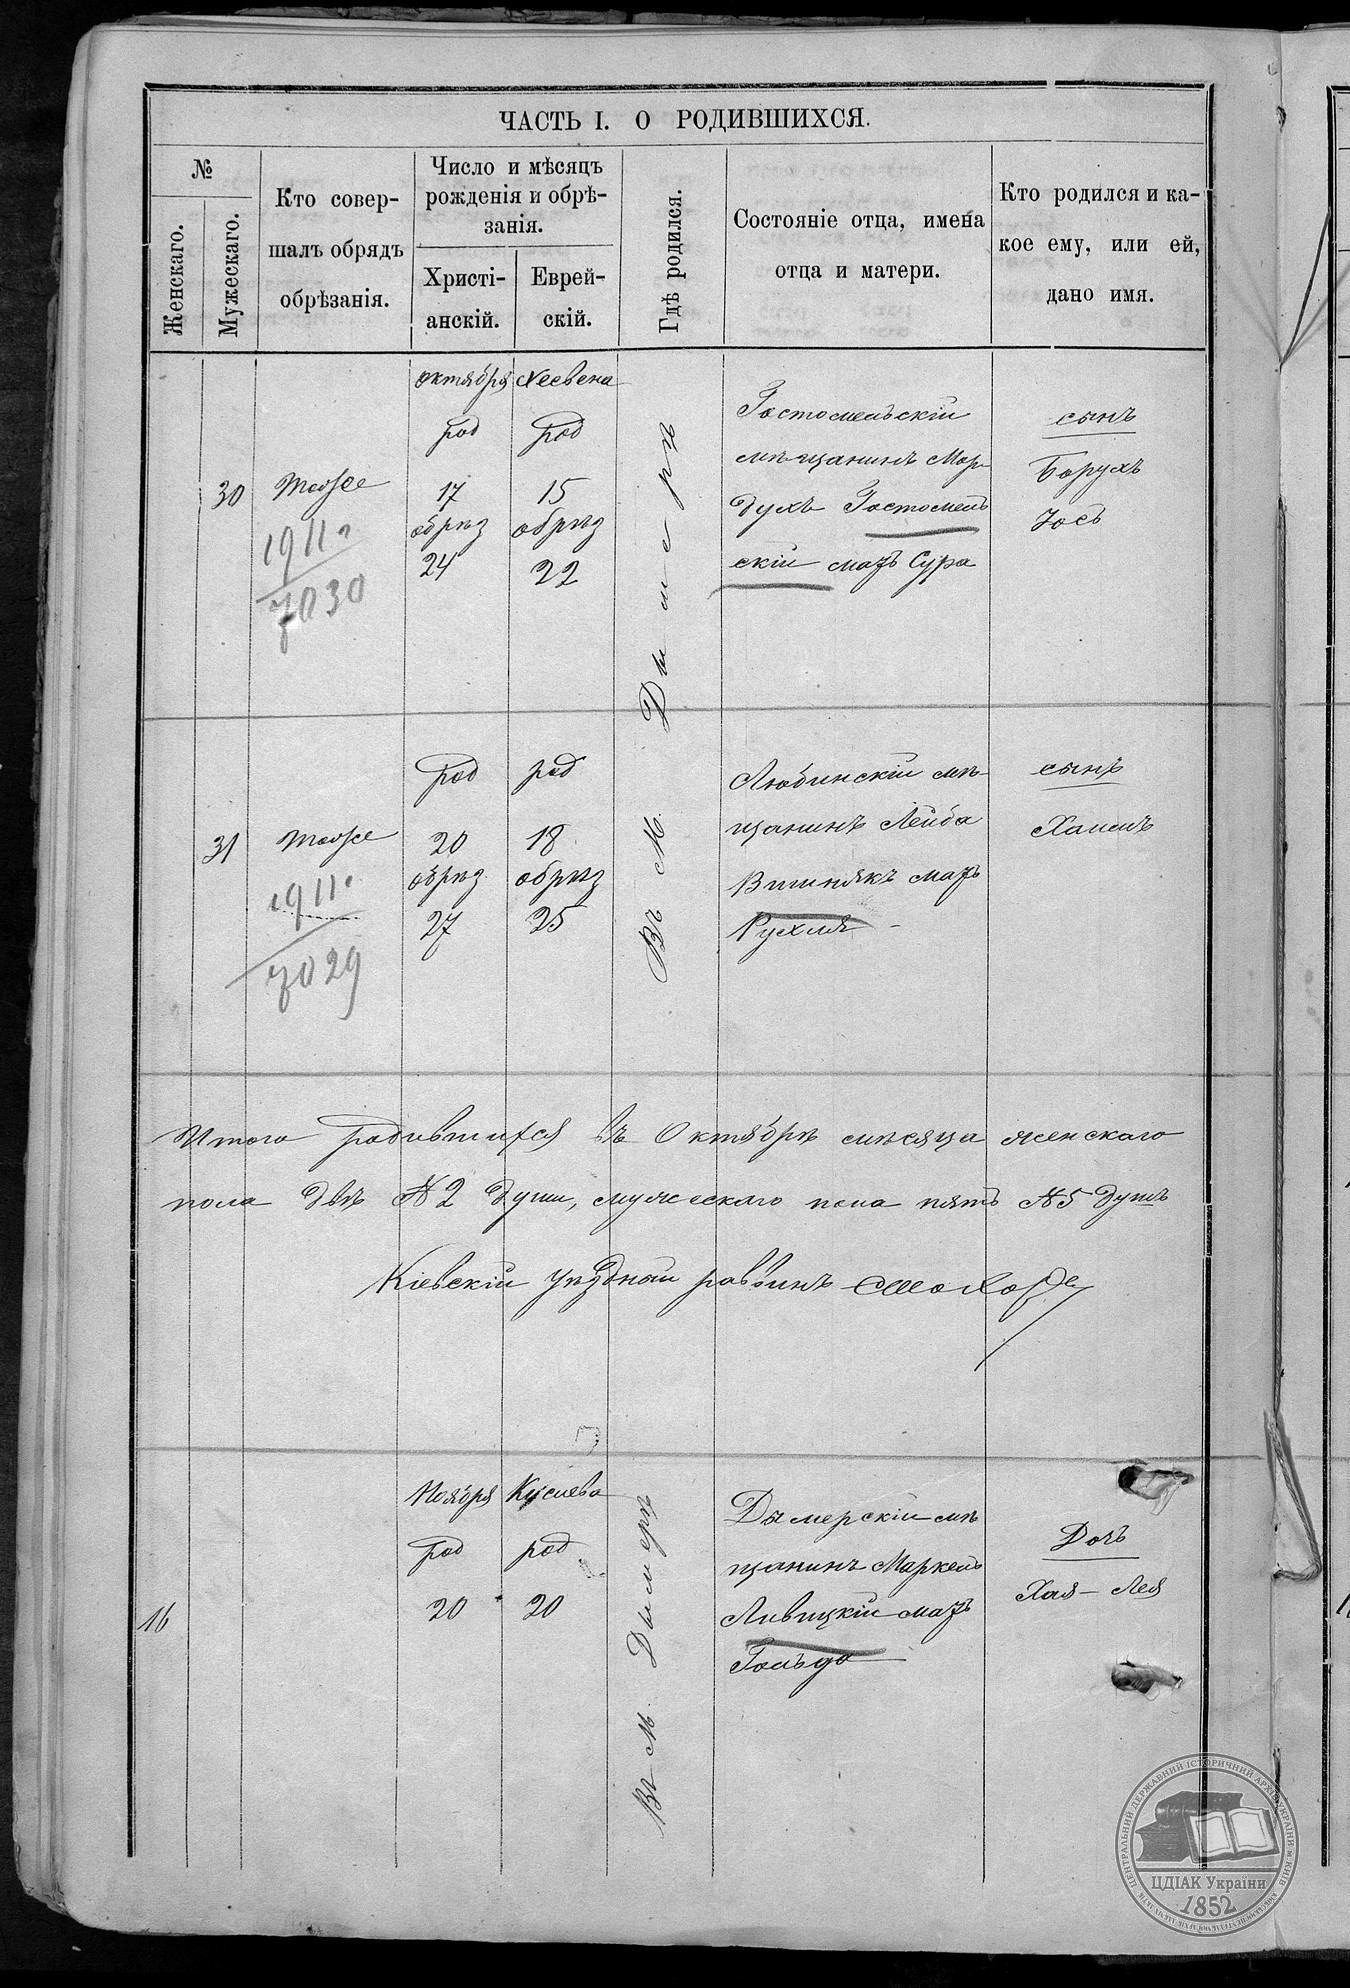 ЧАСТЬ I. О РОДИВШИХСЯ.
№
Женскаго.
Мужескаго.
Кто совер-
шалъ обрядъ
обрѣзанія.
Число и мѣсяцъ
рожденія и обрѣ-
занія.
Христі-
анскій.
Еврей-
скій.
Гдѣ родился.
Состояніе отца, имена
отца и матери.
Кто родился и ка-
кое ему, или ей,
дано имя.
30
Тойже
1911
7030
октября
род
17
обрѣз
24
Хесвена
род
15
обрѣз
22
Въ М. Дымерѣ
Гостомельскій
мѣщанинъ Мор-
духъ Гостомель
скій мать Сура
сынъ
Борухъ
Іось
31
Тойже
1911
7029
род
20
обрѣз
27
род
18
обрѣз
25
Любинскій мѣ-
щанинъ Лейба
Вишнякъ мать
Рухля
сынъ
Хаимъ
Итого родившихся въ Октябрѣ мѣсяца женскаго
пола двѣ № 2 души, мужескаго пола пять № 5 душъ
Кіевскій уѣздный раввинъ
16
Ноября
род
20
Кислева
род
20
Въ М. Дымерѣ
Дымерскій мѣ
щанинъ Маркель
Ливицкій мать
Гольда
Дочь
Хая-Лея
ЦЕНТРАЛЬНИЙ ДЕРЖАВНИЙ ІСТОРИЧНИЙ АРХІВ УКРАЇНИ м. КИЇВ
ЦДІАК України
1852